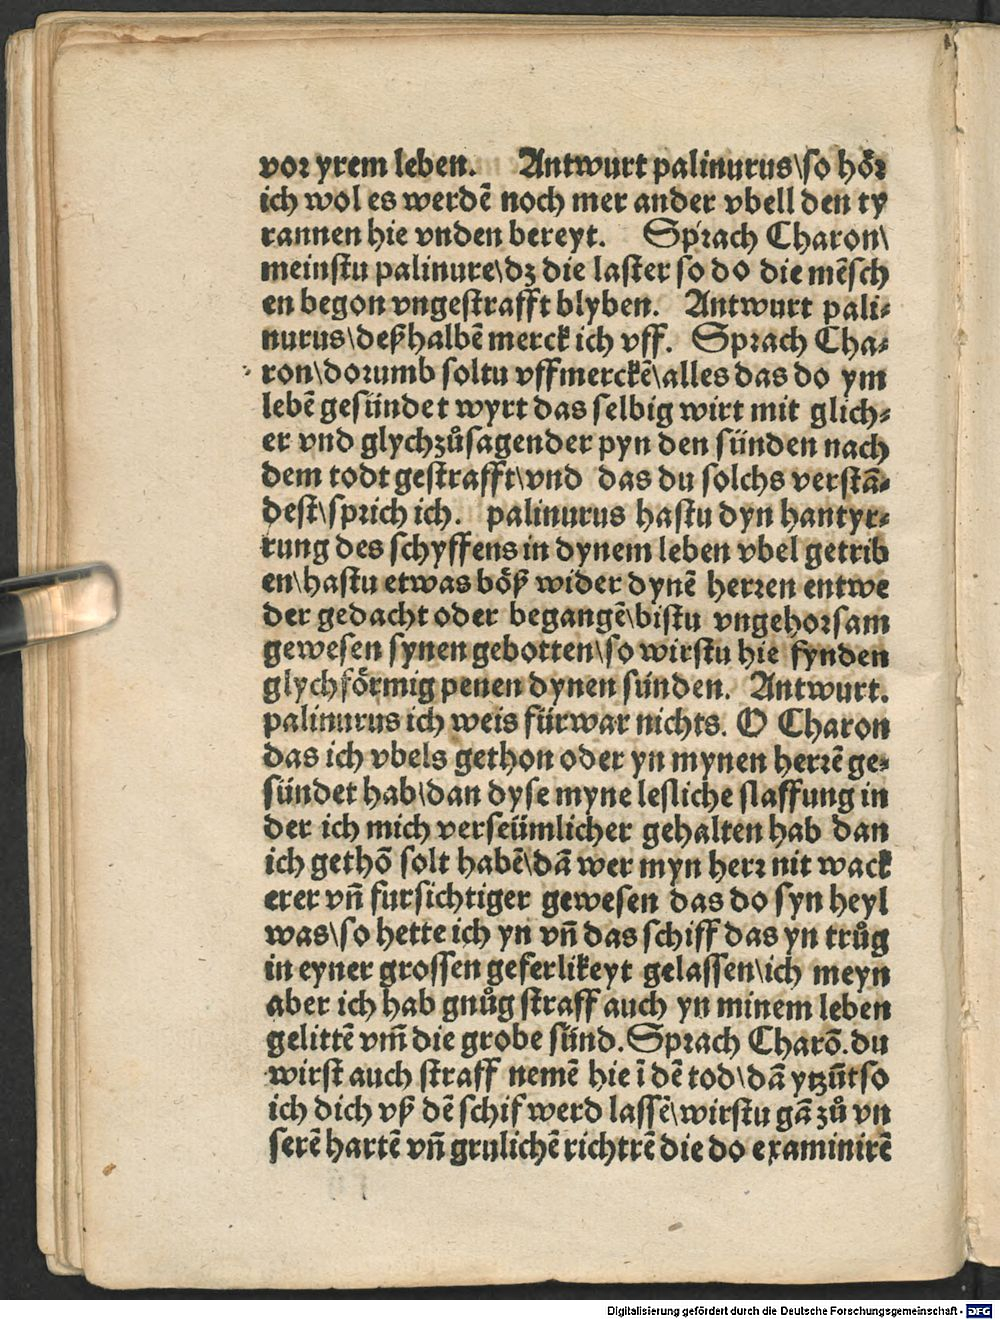 vor yrem leben. Antwurt palinurus\so hör
ich wol es werdē noch mer ander vbell den ty
rannen hie vnden bereyt. Sprach Charon\
meinstu palinure\dz die laster so do die mēsch
en begon vngestrafft blyben. Antwurt pali-
nurus\deßhalbē merck ich vff. Sprach Cha-
ron\dorumb soltu vffmerckē\alles das do ym
lebē gesündet wyrt das selbig wirt mit glich-
er vnd glychzůsagender pyn den sünden nach
dem todt gestrafft\vnd das du solchs verstā-
dest\sprich ich. palinurus hastu dyn hantyr-
rung des schyffens in dynem leben vbel getrib
en\hastu etwas böß wider dynē herren entwe
der gedacht oder begangē\bistu vngehorsam
gewesen synen gebotten\so wirstu hie fynden
glychförmig penen dynen sünden. Antwurt.
palinurus ich weis fürwar nichts. O Charon
das ich vbels gethon oder yn mynen herrē ge-
sündet hab\dan dyse myne lesliche slaffung in
der ich mich verseümlicher gehalten hab dan
ich gethō solt habē\dā wer myn herr nit wack
erer vn̄ fursichtiger gewesen das do syn heyl
was\so hette ich yn vn̄ das schiff das yn trůg
in eyner grossen geferlikeyt gelassen\ich meyn
aber ich hab gnůg straff auch yn minem leben
gelittē vm̄ die grobe sünd. Sprach Charō. du
wirst auch straff nemē hie ī dē tod\dā ytzūtso
ich dich vß dē schif werd lassē\wirstu gā zů vn
serē hartē vn̄ grulichē richtrē die do examinirē
Digitalisierung gefördert durch die Deutsche Forschungsgemeinschaft - DFG